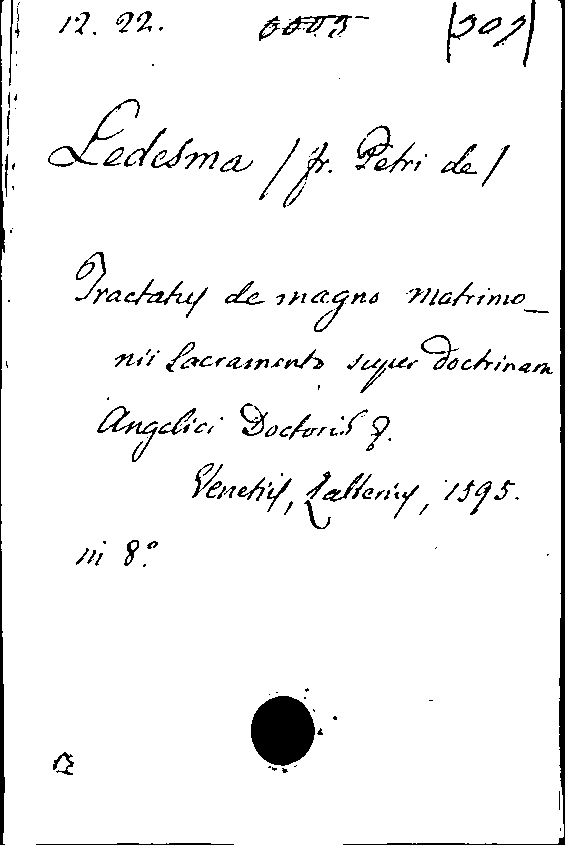 12. 22. 0003 |307|
Ledesma / fr. Petri de /
Tractatus de magno Matrimo_
nii Sacramento super Doctrinam
Angelici Doctoris &.
Venetiis, Zalterius, 1595.
in 8.°